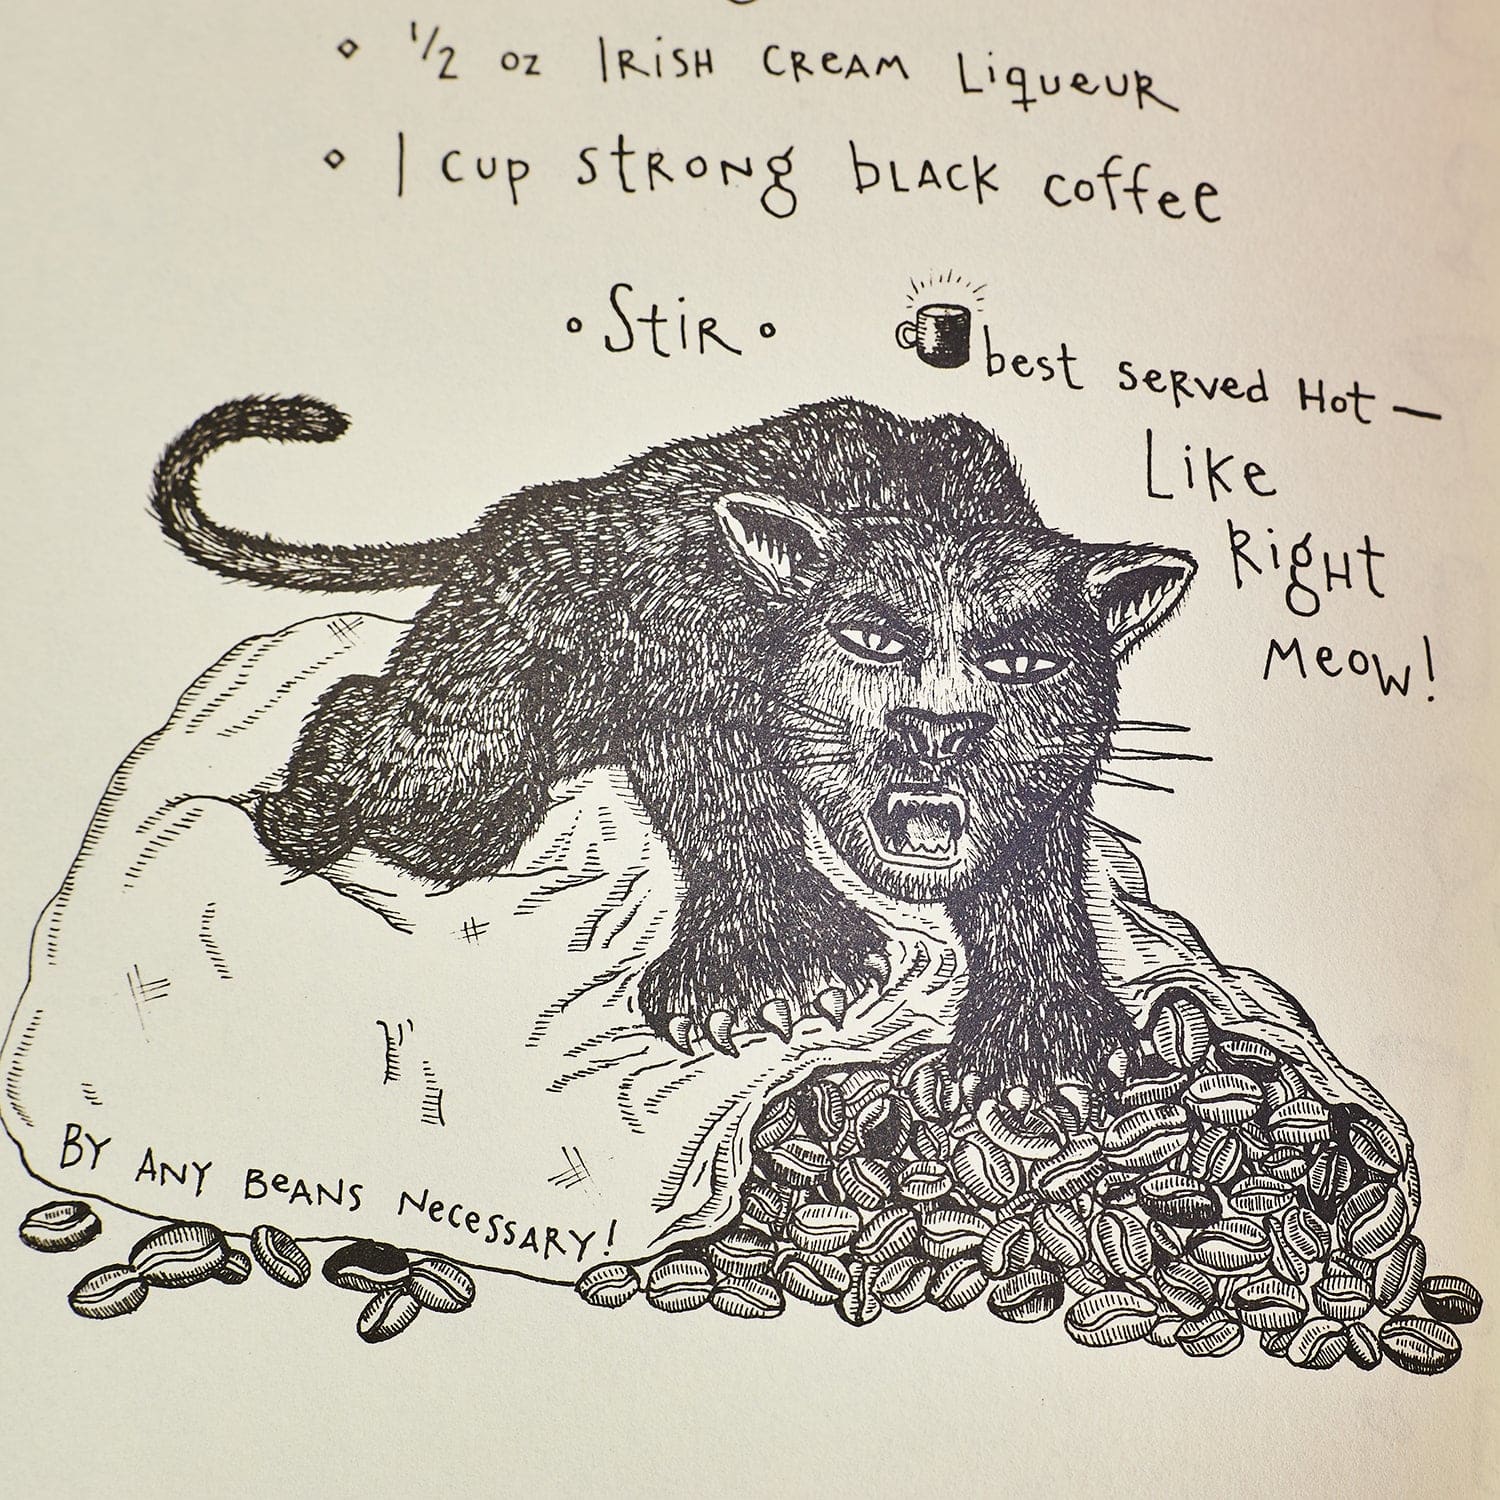 ½ oz Irish Cream Liqueur
1 cup strong black coffee
Stir
best served Hot —
Like
Right
Meow!
By any beans necessary!